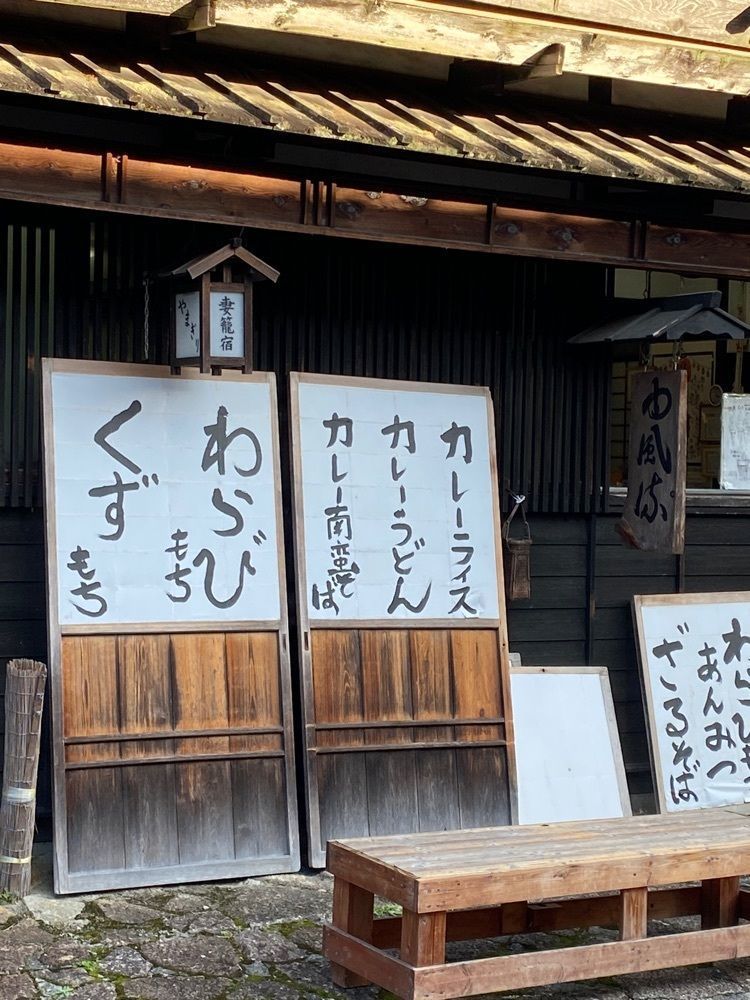 妻籠宿
やまぎり
わらび
もち
くず
もち
カレーライス
カレーうどん
カレー南蛮そば
わらびも
あんみつ
ざるそば